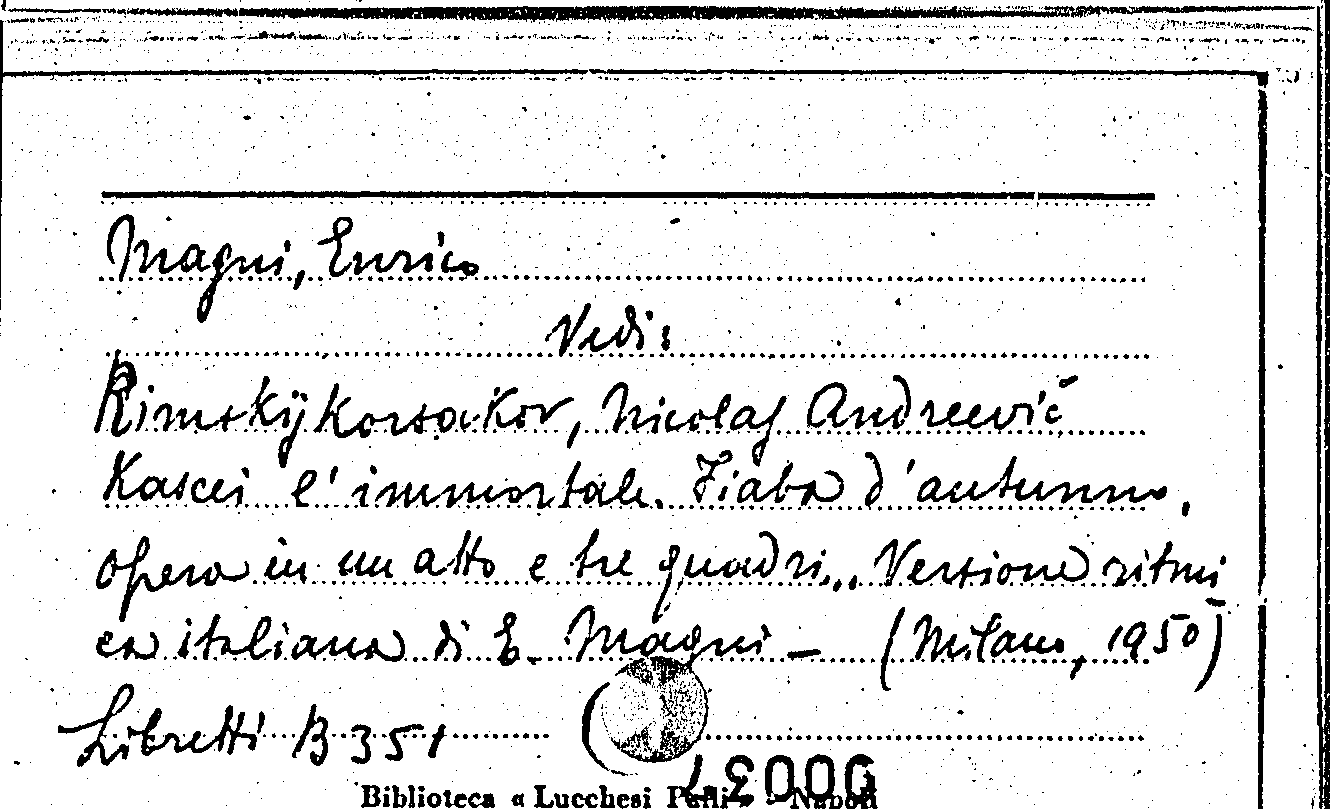 Magni, Enrico
Vedi:
Rimskijkorsakov, Nicolaj Andreevič
Kascei l'immortale. Fiaba d'autunno,
opera in un atto e tre quadri... Versione ritmi
ca italiana di E. Magni - (Milano, 1950)
Libretti B 351
Biblioteca « Lucchesi Palli » - Napoli